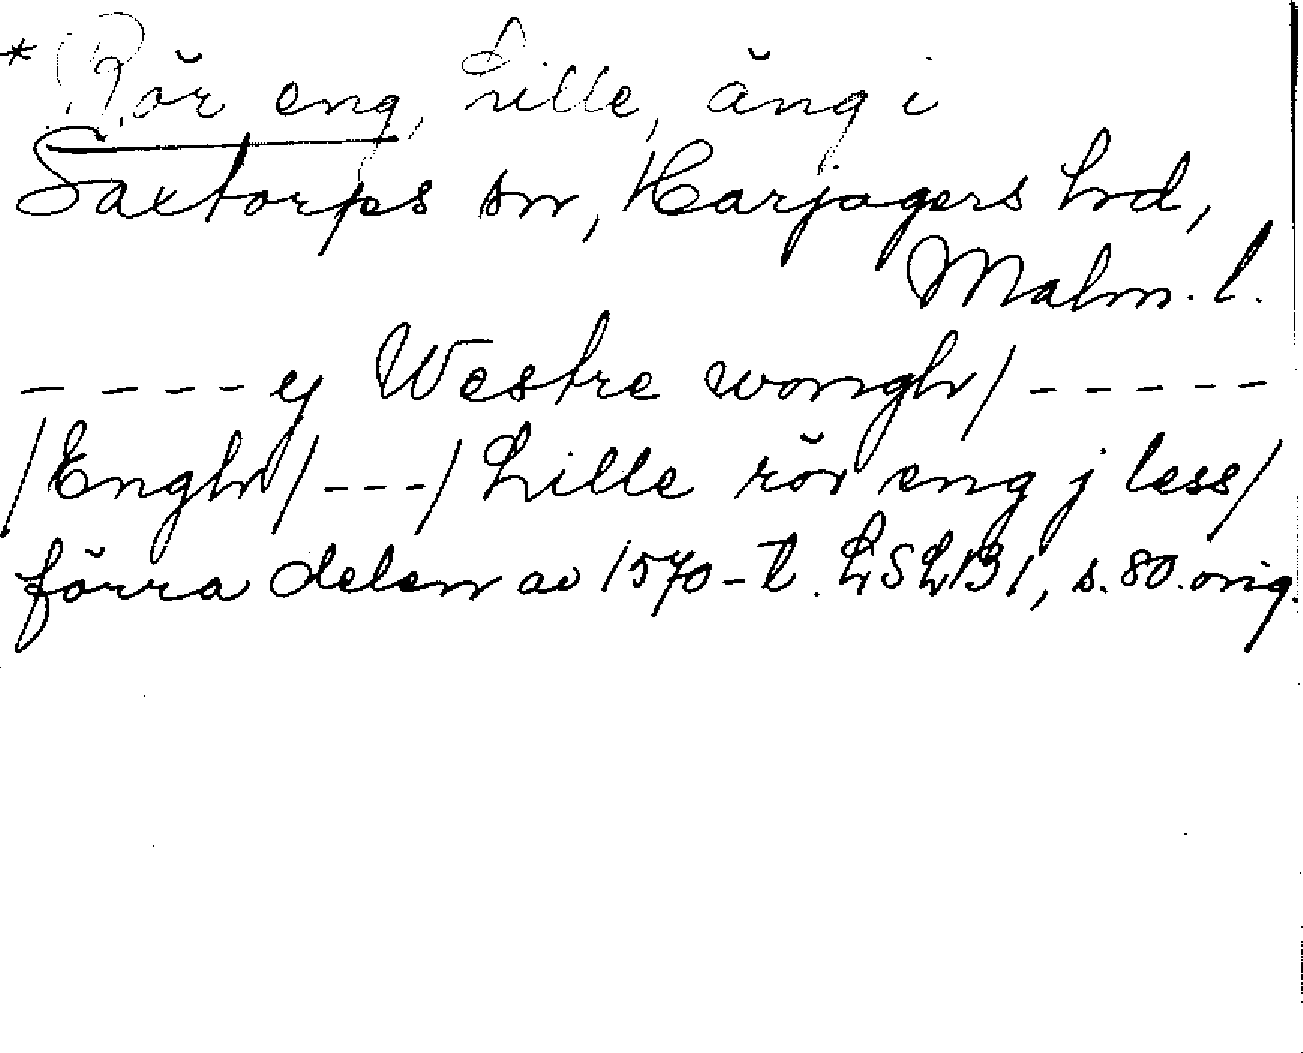 * Rör eng, Lille, äng i
Saxtorps sn, Harjagers hd,
Malm. l.
- - - - ej Westre wongh / - - - - -
/ Engh / - - - / Lille rör eng j less /
förra delen av 1570-t. LSLB1, s. 80. orig.